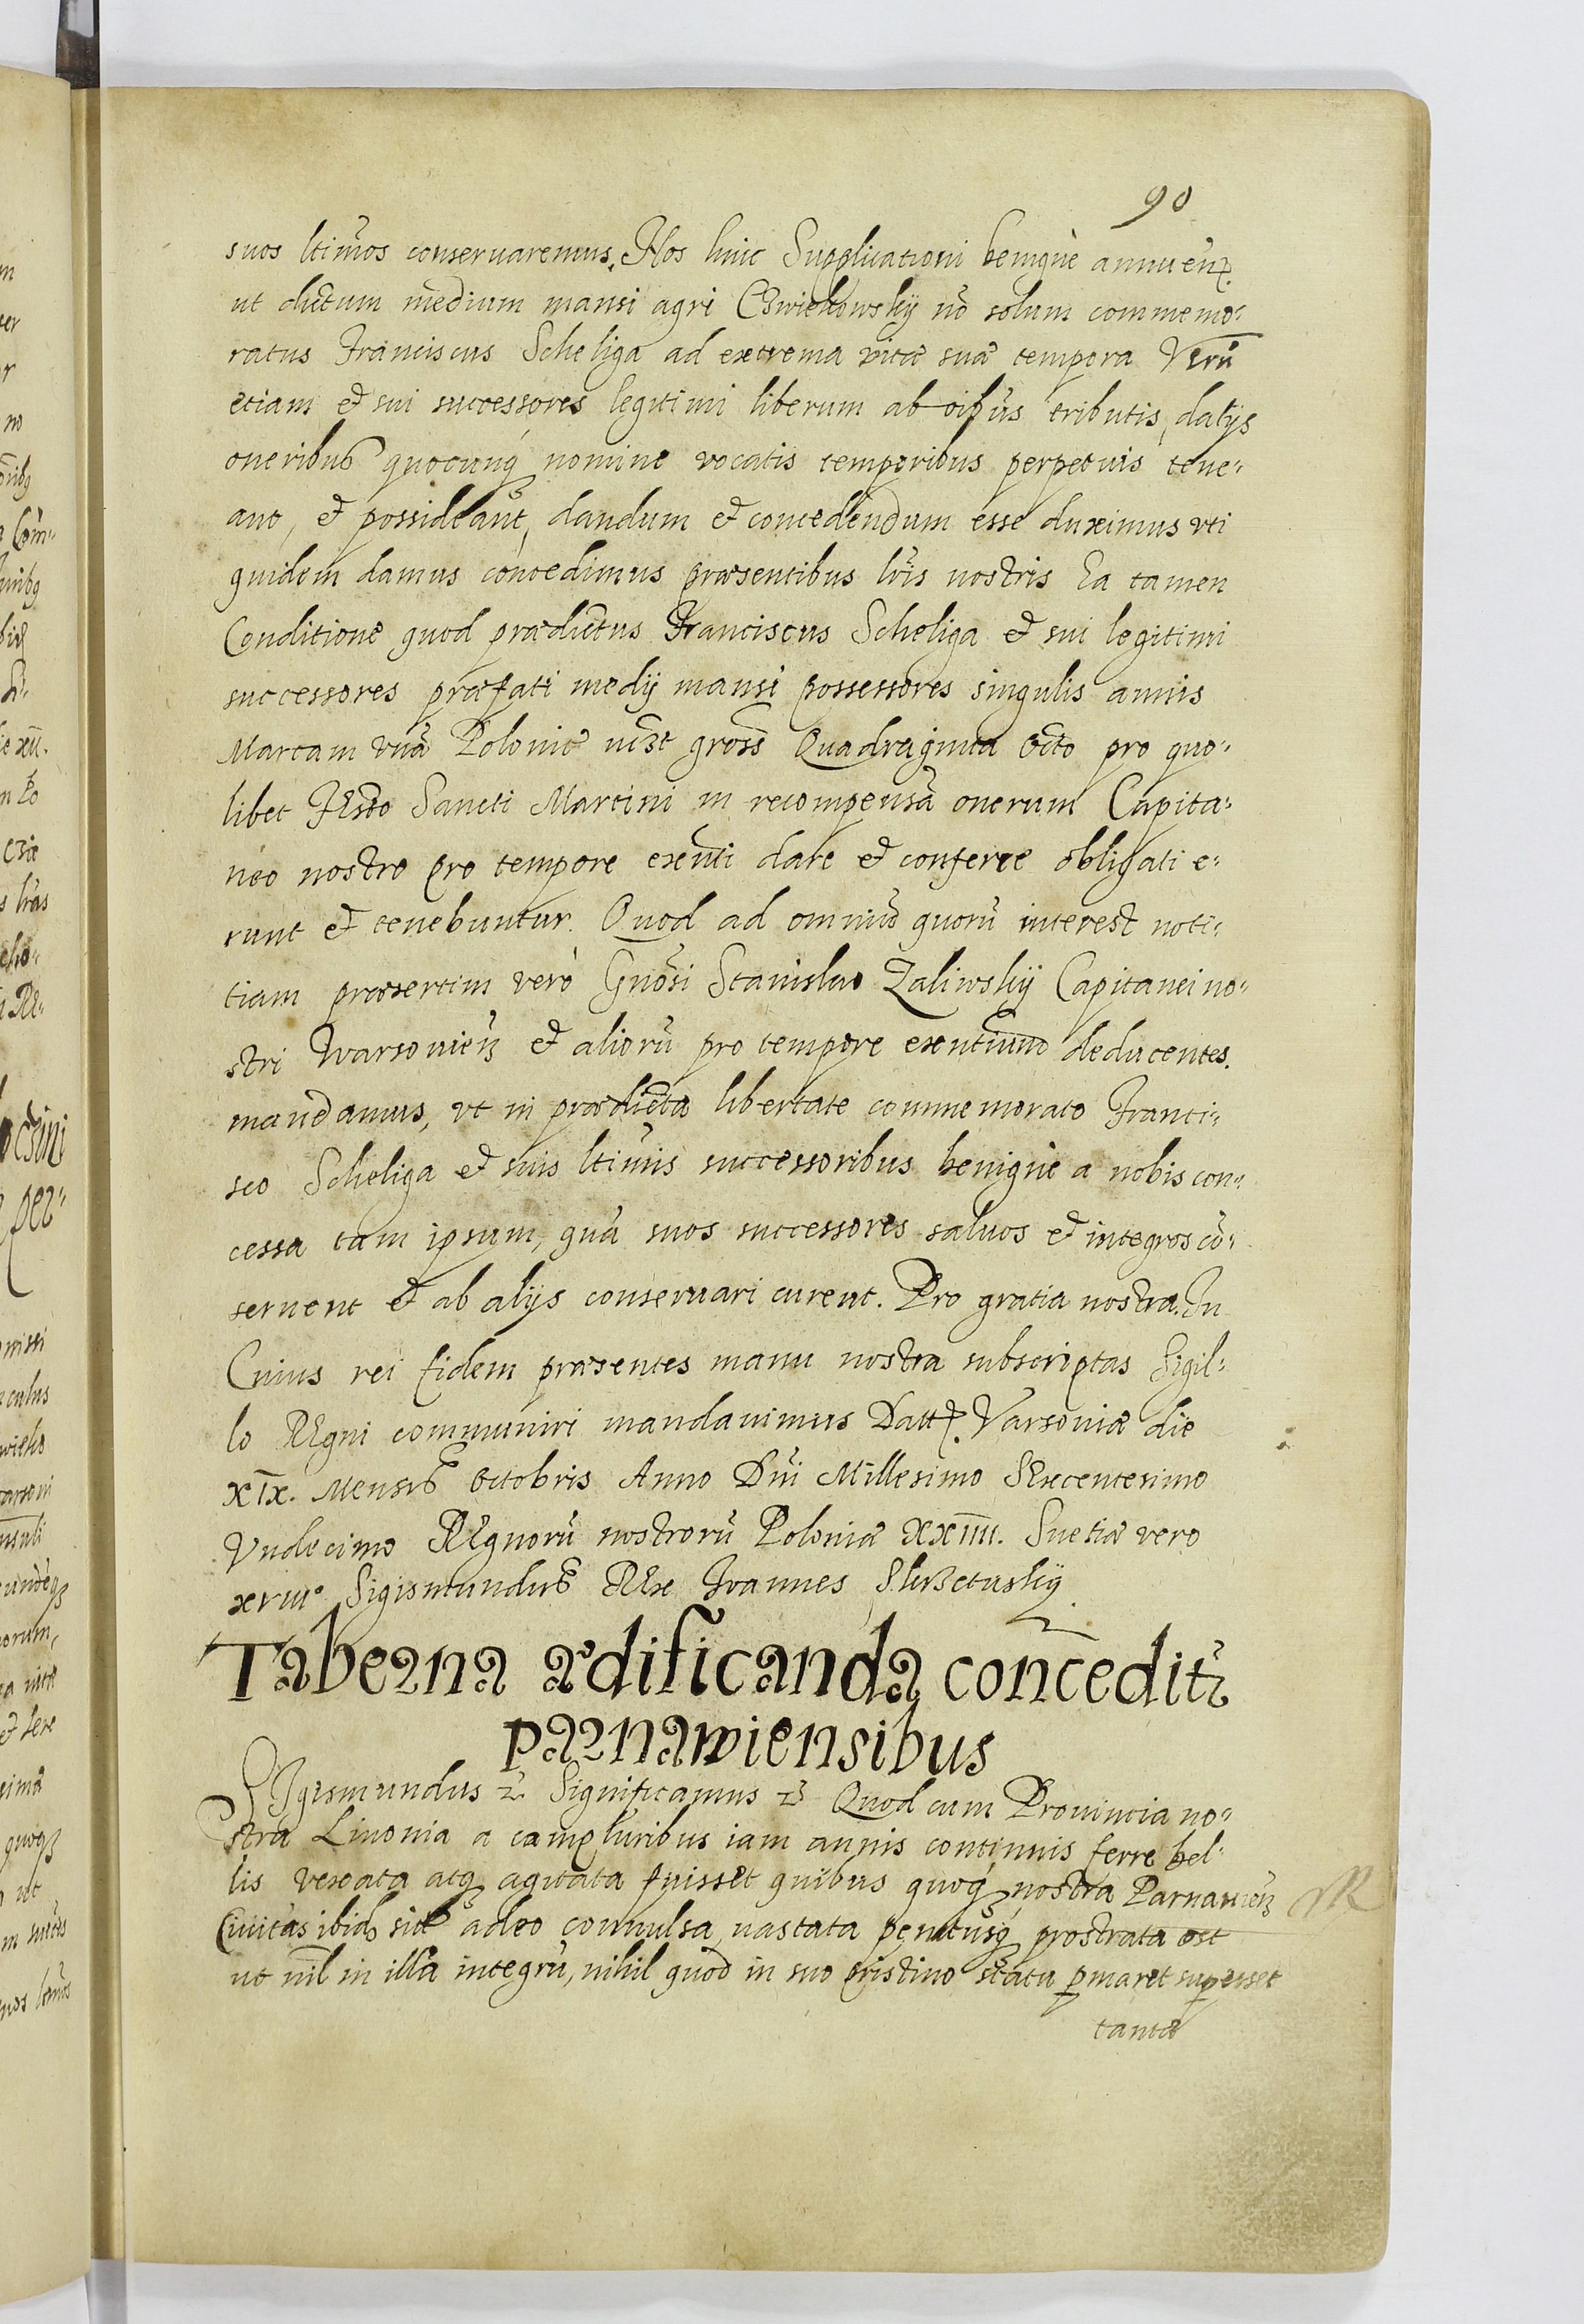 90
suos ltimos conseruaremus. Nos huic Supplicationi benignè annuen.
ut dictum medium mansi agri Czwiekowskÿ nō solum commemo-
ratus Franciscus Scheliga ad extrema vitæ suæ tempora Verū
etiam et sui successores legitimi liberum ab oibus tributis, datÿs
oneribus quocunq nomine vocatis temporibus perpetuis tene-
ant, et possideant, dandum et concedendum esse duximus vti
quidem damus concedimus præsentibus lris nostris Ea tamen
Conditione quod prædictus Franciscus Scheliga et sui legitimi
successores præfati medÿ mansi possessores singulis annis
Marcam vnā Polonic. nuʒt gross Quadraginta Octo pro quo-
libet Festo Sancti Martini in recompensā onerum Capita-
neo nostro pro tempore exenti dare et conferre obligati e-
runt et tenebuntur. Quod ad omniū quorū interest noti-
tiam præsertim verò Gnosi Stanislao Zaliwskÿ Capitanei no-
stri Warsouien et aliorū pro tempore exentium deducentes.
mandamus, vt in prædicta libertate commemorato Franci-
sco Scheliga et suis ltimis successoribus benignè a nobis con-
cessa tam ipsum, quā suos successores saluos et integros cō-
seruent et ab alÿs conseruari curent. Pro gratia nostra. In
Cuius rei fidem præsentes manu nostra subscriptas Sigil-
lo Regni communiri mandauimus Datt. Varsouiæ die
XIX. Mensis Octobris Anno Dni Millesimo Sexcentesimo
Vndecimo Regnorū nostrorū Poloniæ XXIIII. Suetiæ vero
xviii° Sigismundus Rex Joannes Shzetuskÿ
Taberna ædificanda conceditr
parnawiensibus
SIgismundus Significamus Quod cum Prouincia no-
stra Liuonia a campluribus iam annis continuis ferre bel-
lis vexata atq agitata fuisset quibus quoq nostra Parnauien
Ciuitas ibid. sit adeo conuulsa, uastata penitusq prostrata est
ut nil in illa integrū, nihil quod in suo pristino statu pmaret supesset
tanta